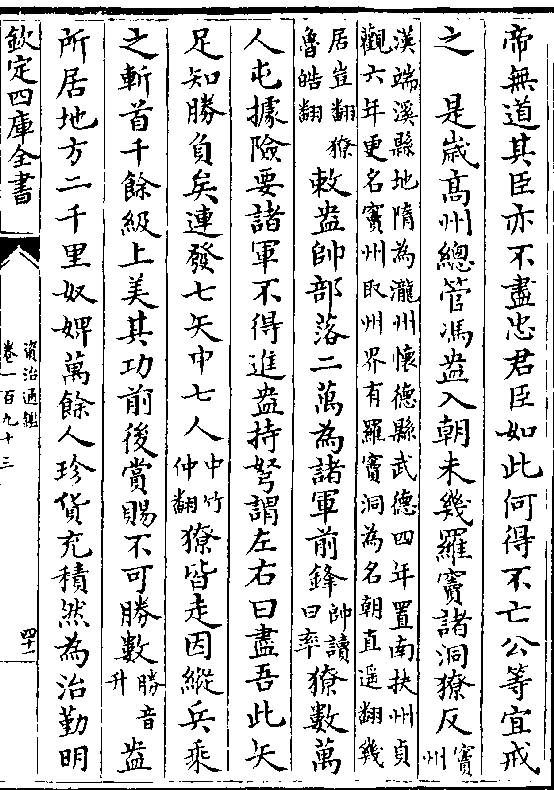 帝無道其臣亦不盡忠君臣如此何得不亡公等宜戒
之　是歲高州總管馮盎入朝未幾羅竇諸洞獠反竇州
漢端溪縣地隋為瀧州懷德縣武德四年置南扶州貞
觀六年更名竇州取州界有羅竇洞為名朝直遥翻幾
居豈翻獠
魯皓翻
敕盎帥部落二萬為諸軍前鋒帥讀曰率獠數萬
人屯據險要諸軍不得進盎持弩謂左右曰盡吾此矢
足知勝負矣連發七矢中七人中竹仲翻獠皆走因縱兵乘
之斬首千餘級上美其功前後賞賜不可勝數勝音升盎
所居地方二千里奴婢萬餘人珍貨充積然為治勤明
欽定四庫全書
資治通鑑
卷一百九十三
四十一